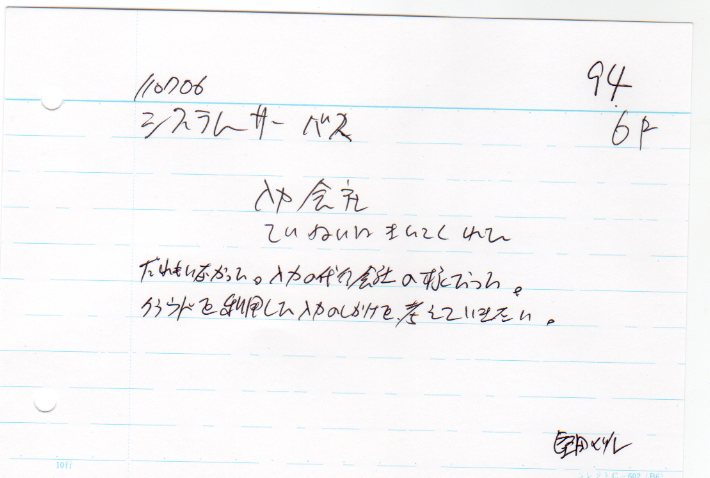 110706
94
システムサービス
6P
入力会社
ていねいにきいてくれた
だれもいなかった。入力の代行会社の様だった。
クラウドを利用した入力のしかけを考えていきたい。
1011